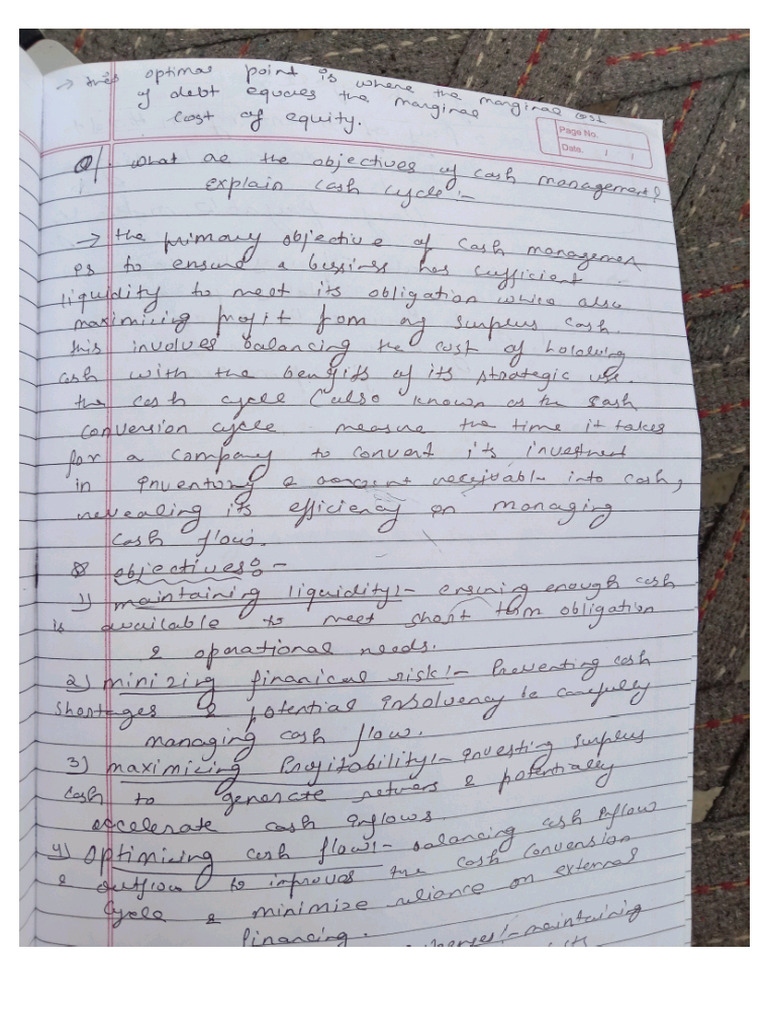 → this optimal point is where the marginal cost
of debt equales the marginal
cost of equity.
Page No.
Date. / /
Q/ what are the objectives of cash management?
explain cash cycle :-
→ the primary objective of cash managemen
es to ensure a bussiness has sufficient
liquidity to meet its obligation while also
maximizing profit from any surplus cash.
this involves balancing the cost of holding
cash with the benefits of its strategic use.
the cash cycle (also known as the cash
conversion cycle measure the time it takes
for a company to convert its investment
in inventory & account receivable into cash,
revealing its efficiency in managing
cash flow.
objectives :-
1) maintaining liquidity :- ensuring enough cash
is available to meet short term obligation
& operational needs.
2) minizing finanical risk :- Preventing cash
shortages & potential insolvency be carefully
managing cash flow.
3) maximizing Profitability :- investing surplus
cash to generate returns & potentially
accelerate cash inflows.
4) optimizing cash flow :- balancing cash inflow
& outflow to improves the cash conversion
cycle & minimize reliance on external
financing.
:- maintaining